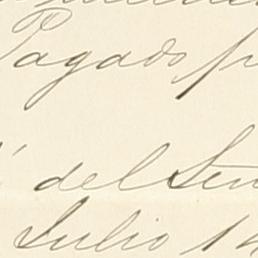 Pagado p
del Sen
Julio 1